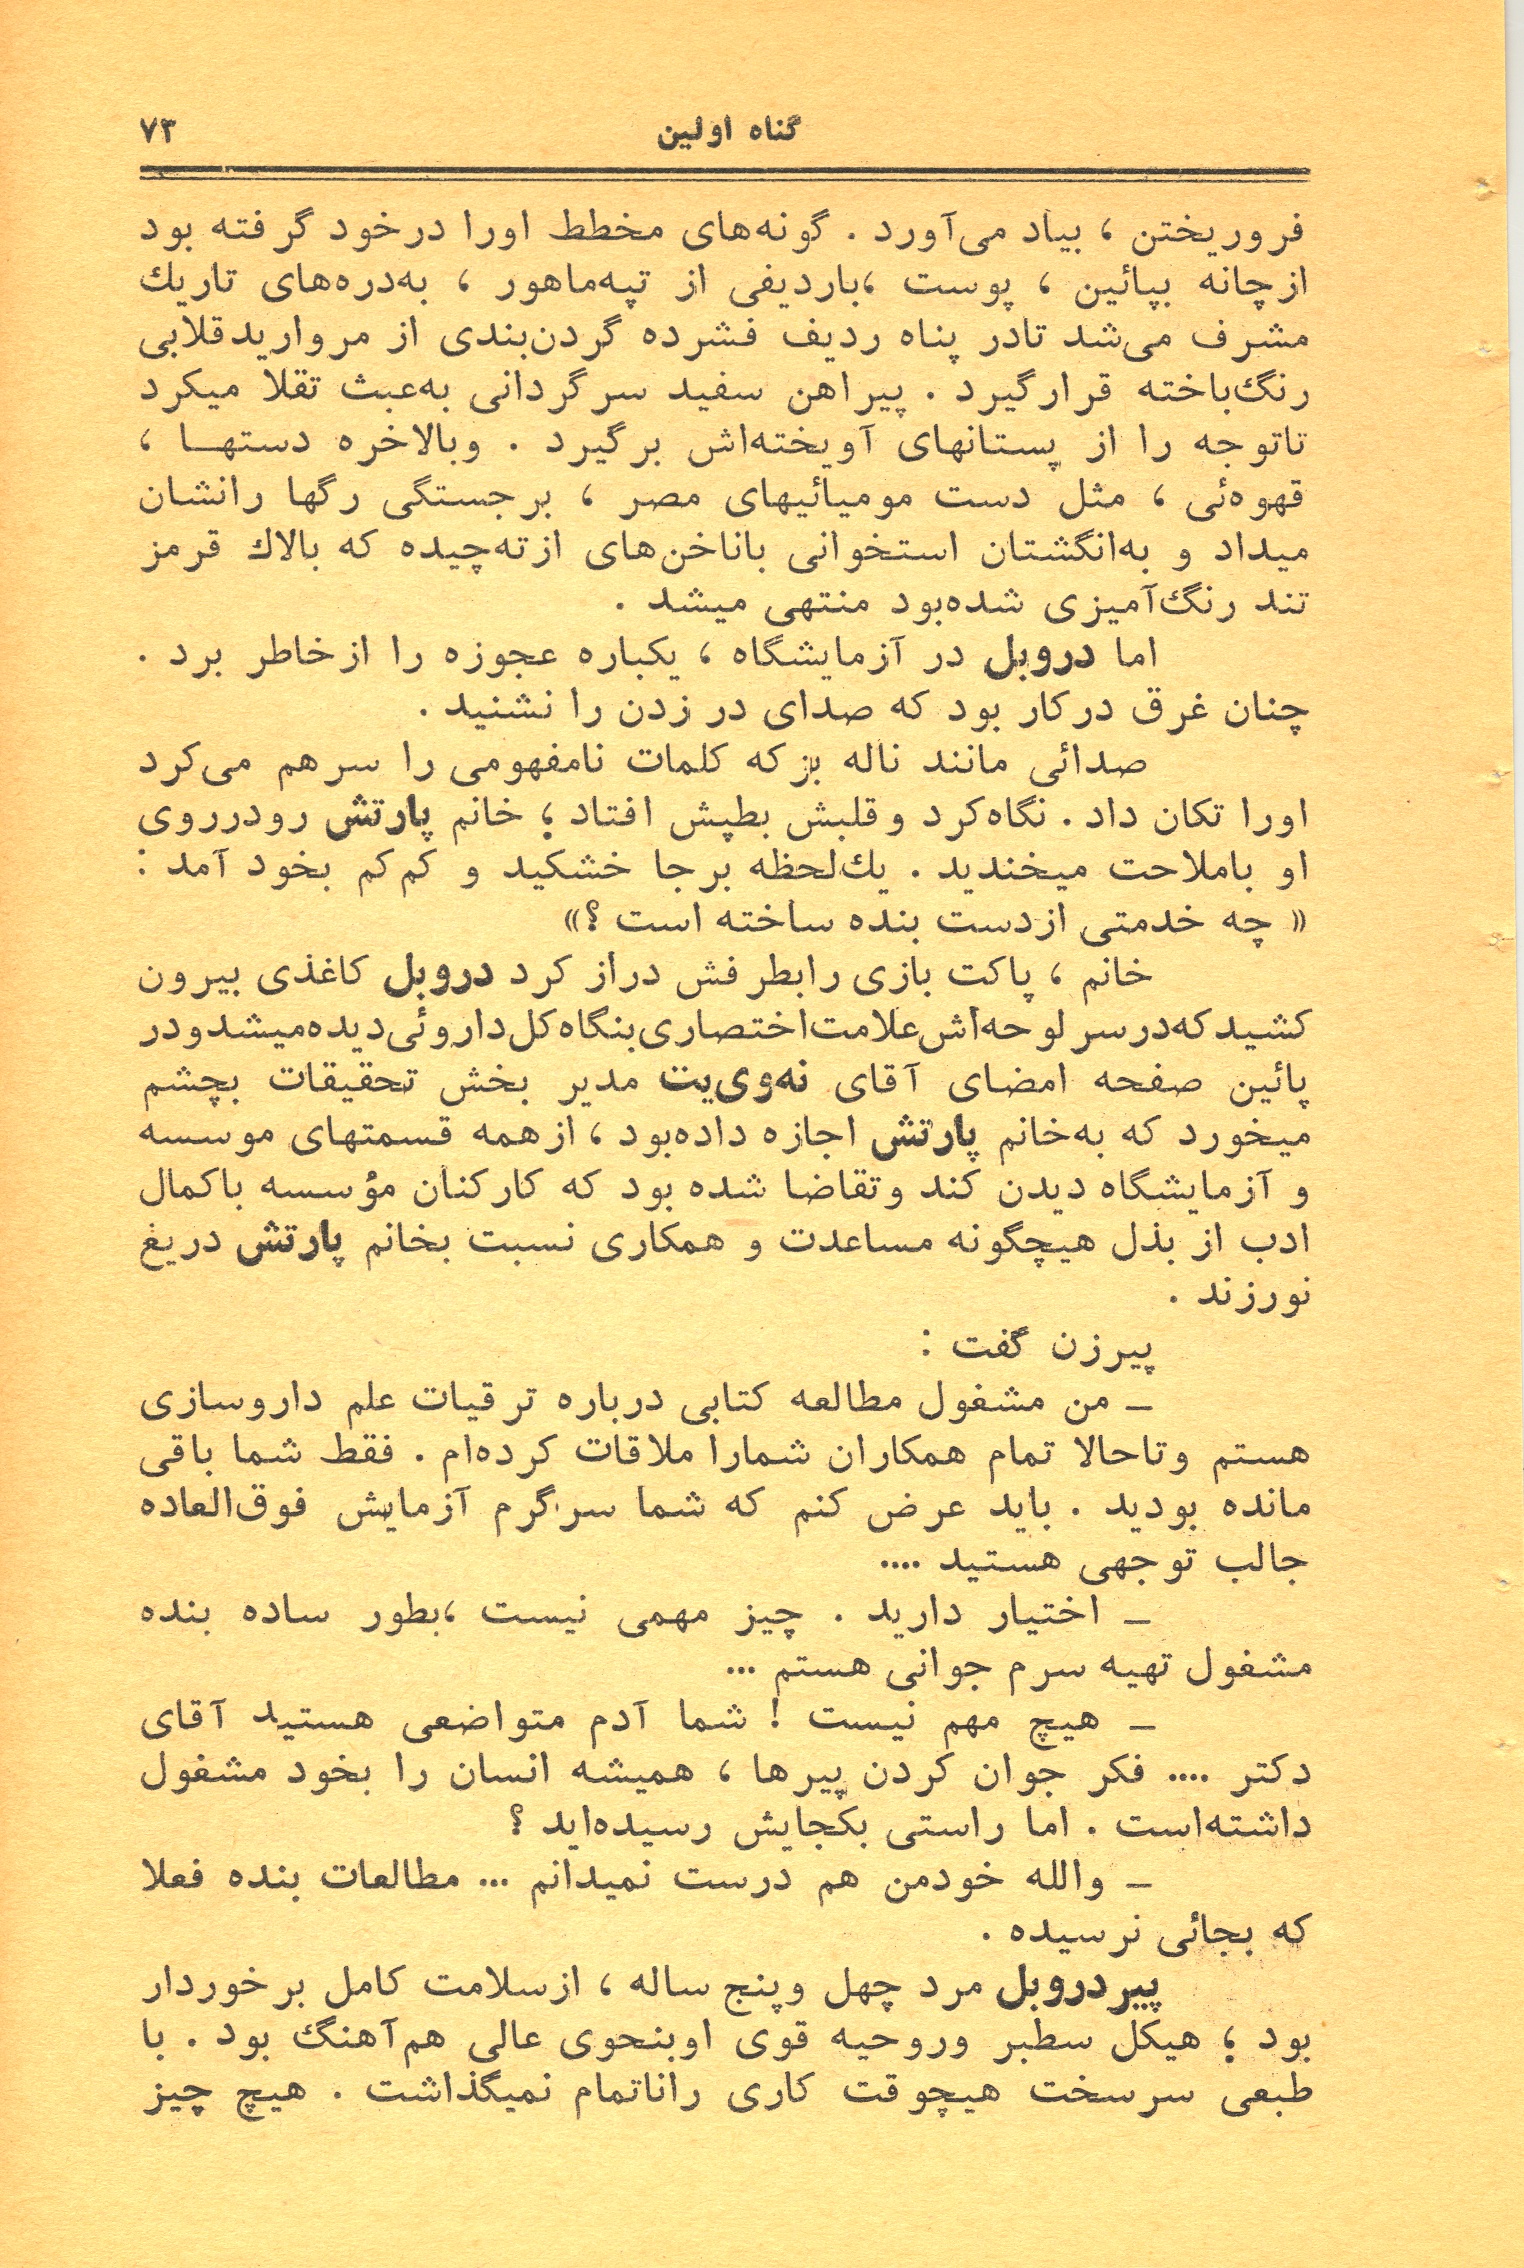 گناه اولین
۷۳
فروریختن ، بیاد می‌آورد . گونه‌های مخطط اورا درخود گرفته بود
ازچانه بپائین ، پوست ،باردیفی از تپه‌ماهور ، به‌دره‌های تاریك
مشرف می‌شد تادر پناه ردیف فشرده گردن‌بندی از مرواریدقلابی
رنگ‌باخته قرارگیرد . پیراهن سفید سرگردانی به‌عبث تقلا میکرد
تاتوجه را از پستانهای آویخته‌اش برگیرد . وبالاخره دستهـا ،
قهوه‌ئی ، مثل دست مومیائیهای مصر ، برجستگی رگها رانشان
میداد و به‌انگشتان استخوانی باناخن‌های ازته‌چیده که بالاك قرمز
تند رنگ‌آمیزی شده‌بود منتهی میشد .
اما دروبل در آزمایشگاه ، یکباره عجوزه را ازخاطر برد .
چنان غرق درکار بود که صدای در زدن را نشنید .
صدائی مانند ناله بزکه کلمات نامفهومی را سرهم می‌کرد
اورا تکان داد . نگاه‌کرد وقلبش بطپش افتاد ؛ خانم پارتش رودرروی
او باملاحت میخندید . یك‌لحظه برجا خشکید و کم‌کم بخود آمد :
« چه خدمتی ازدست بنده ساخته است ؟»
خانم ، پاکت بازی رابطرفش دراز کرد دروبل کاغذی بیرون
کشیدکه‌درسر لوحه‌اش‌علامت‌اختصاری‌بنگاه‌کل‌داروئی‌دیده‌میشدودر
پائین صفحه امضای آقای نه‌وی‌یت مدیر بخش تحقیقات بچشم
میخورد که به‌خانم پارتش اجازه داده‌بود ، ازهمه قسمتهای موسسه
و آزمایشگاه دیدن کند وتقاضا شده بود که کارکنان مؤسسه باکمال
ادب از بذل هیچگونه مساعدت و همکاری نسبت بخانم پارتش دریغ
نورزند .
پیرزن گفت :
ـ من مشغول مطالعه کتابی درباره ترقیات علم داروسازی
هستم وتاحالا تمام همکاران شمارا ملاقات کرده‌ام . فقط شما باقی
مانده بودید . باید عرض کنم که شما سرگرم آزمایش فوق‌العاده
جالب توجهی هستید ....
ـ اختیار دارید . چیز مهمی نیست ،بطور ساده بنده
مشغول تهیه سرم جوانی هستم ...
ـ هیچ مهم نیست ! شما آدم متواضعی هستید آقای
دکتر .... فکر جوان کردن پیرها ، همیشه انسان را بخود مشغول
داشته‌است . اما راستی بکجایش رسیده‌اید ؟
ـ والله خودمن هم درست نمیدانم ... مطالعات بنده فعلا
که بجائی نرسیده .
پیردروبل مرد چهل وپنج ساله ، ازسلامت کامل برخوردار
بود ؛ هیکل سطبر وروحیه قوی اوبنحوی عالی هم‌آهنگ بود . با
طبعی سرسخت هیچوقت کاری راناتمام نمیگذاشت . هیچ چیز